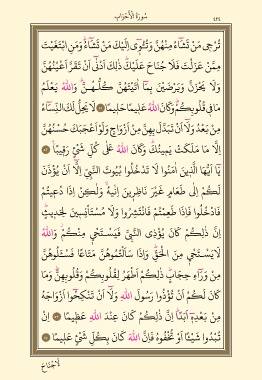 سُورَةُ الْأَحْزَابِ
٤٢٤
تُرْجِى مَنْ تَشَٓاءُ مِنْهُنَّ وَتُـْٔوٓى اِلَيْكَ مَنْ تَشَٓاءُ وَمَنِ ابْتَغَيْتَ
مِمَّنْ عَزَلْتَ فَلَا جُنَاحَ عَلَيْكَ ذٰلِكَ اَدْنٰٓى اَنْ تَقَرَّ اَعْيُنُهُنَّ
وَلَا يَحْزَنَّ وَيَرْضَيْنَ بِمَٓا اٰتَيْتَهُنَّ كُلُّهُنَّ وَاللّٰهُ يَعْلَمُ
مَا فِى قُلُوبِكُمْ وَكَانَ اللّٰهُ عَلِيمًا حَلِيمًا ٥١ لَا يَحِلُّ لَكَ النِّسَٓاءُ
مِنْ بَعْدُ وَلَٓا اَنْ تَبَدَّلَ بِهِنَّ مِنْ اَزْوَاجٍ وَلَوْ اَعْجَبَكَ حُسْنُهُنَّ
اِلَّا مَا مَلَكَتْ يَمِينُكَ وَكَانَ اللّٰهُ عَلٰى كُلِّ شَىْءٍ رَقِيبًا ٥٢
يَٓا اَيُّهَا الَّذِينَ اٰمَنُوا لَا تَدْخُلُوا بُيُوتَ النَّبِىِّ اِلَّٓا اَنْ يُؤْذَنَ
لَكُمْ اِلٰى طَعَامٍ غَيْرَ نَاظِرِينَ اِنٰيهُ وَلٰكِنْ اِذَا دُعِيتُمْ
فَادْخُلُوا فَاِذَا طَعِمْتُمْ فَانْتَشِرُوا وَلَا مُسْتَأْنِسِينَ لِحَدِيثٍ
اِنَّ ذٰلِكُمْ كَانَ يُؤْذِى النَّبِىَّ فَيَسْتَحْيٖ مِنْكُمْ وَاللّٰهُ
لَا يَسْتَحْيٖ مِنَ الْحَقِّ وَاِذَا سَاَلْتُمُوهُنَّ مَتَاعًا فَسْـَٔلُوهُنَّ
مِنْ وَرَٓاءِ حِجَابٍ ذٰلِكُمْ اَطْهَرُ لِقُلُوبِكُمْ وَقُلُوبِهِنَّ وَمَا
كَانَ لَكُمْ اَنْ تُؤْذُوا رَسُولَ اللّٰهِ وَلَٓا اَنْ تَنْكِحُٓوا اَزْوَاجَهُ
مِنْ بَعْدِهٖٓ اَبَدًا اِنَّ ذٰلِكُمْ كَانَ عِنْدَ اللّٰهِ عَظِيمًا ٥٣ اِنْ
تُبْدُوا شَيْـًٔا اَوْ تُخْفُوهُ فَاِنَّ اللّٰهَ كَانَ بِكُلِّ شَىْءٍ عَلِيمًا ٥٤
لَا جُنَاحَ